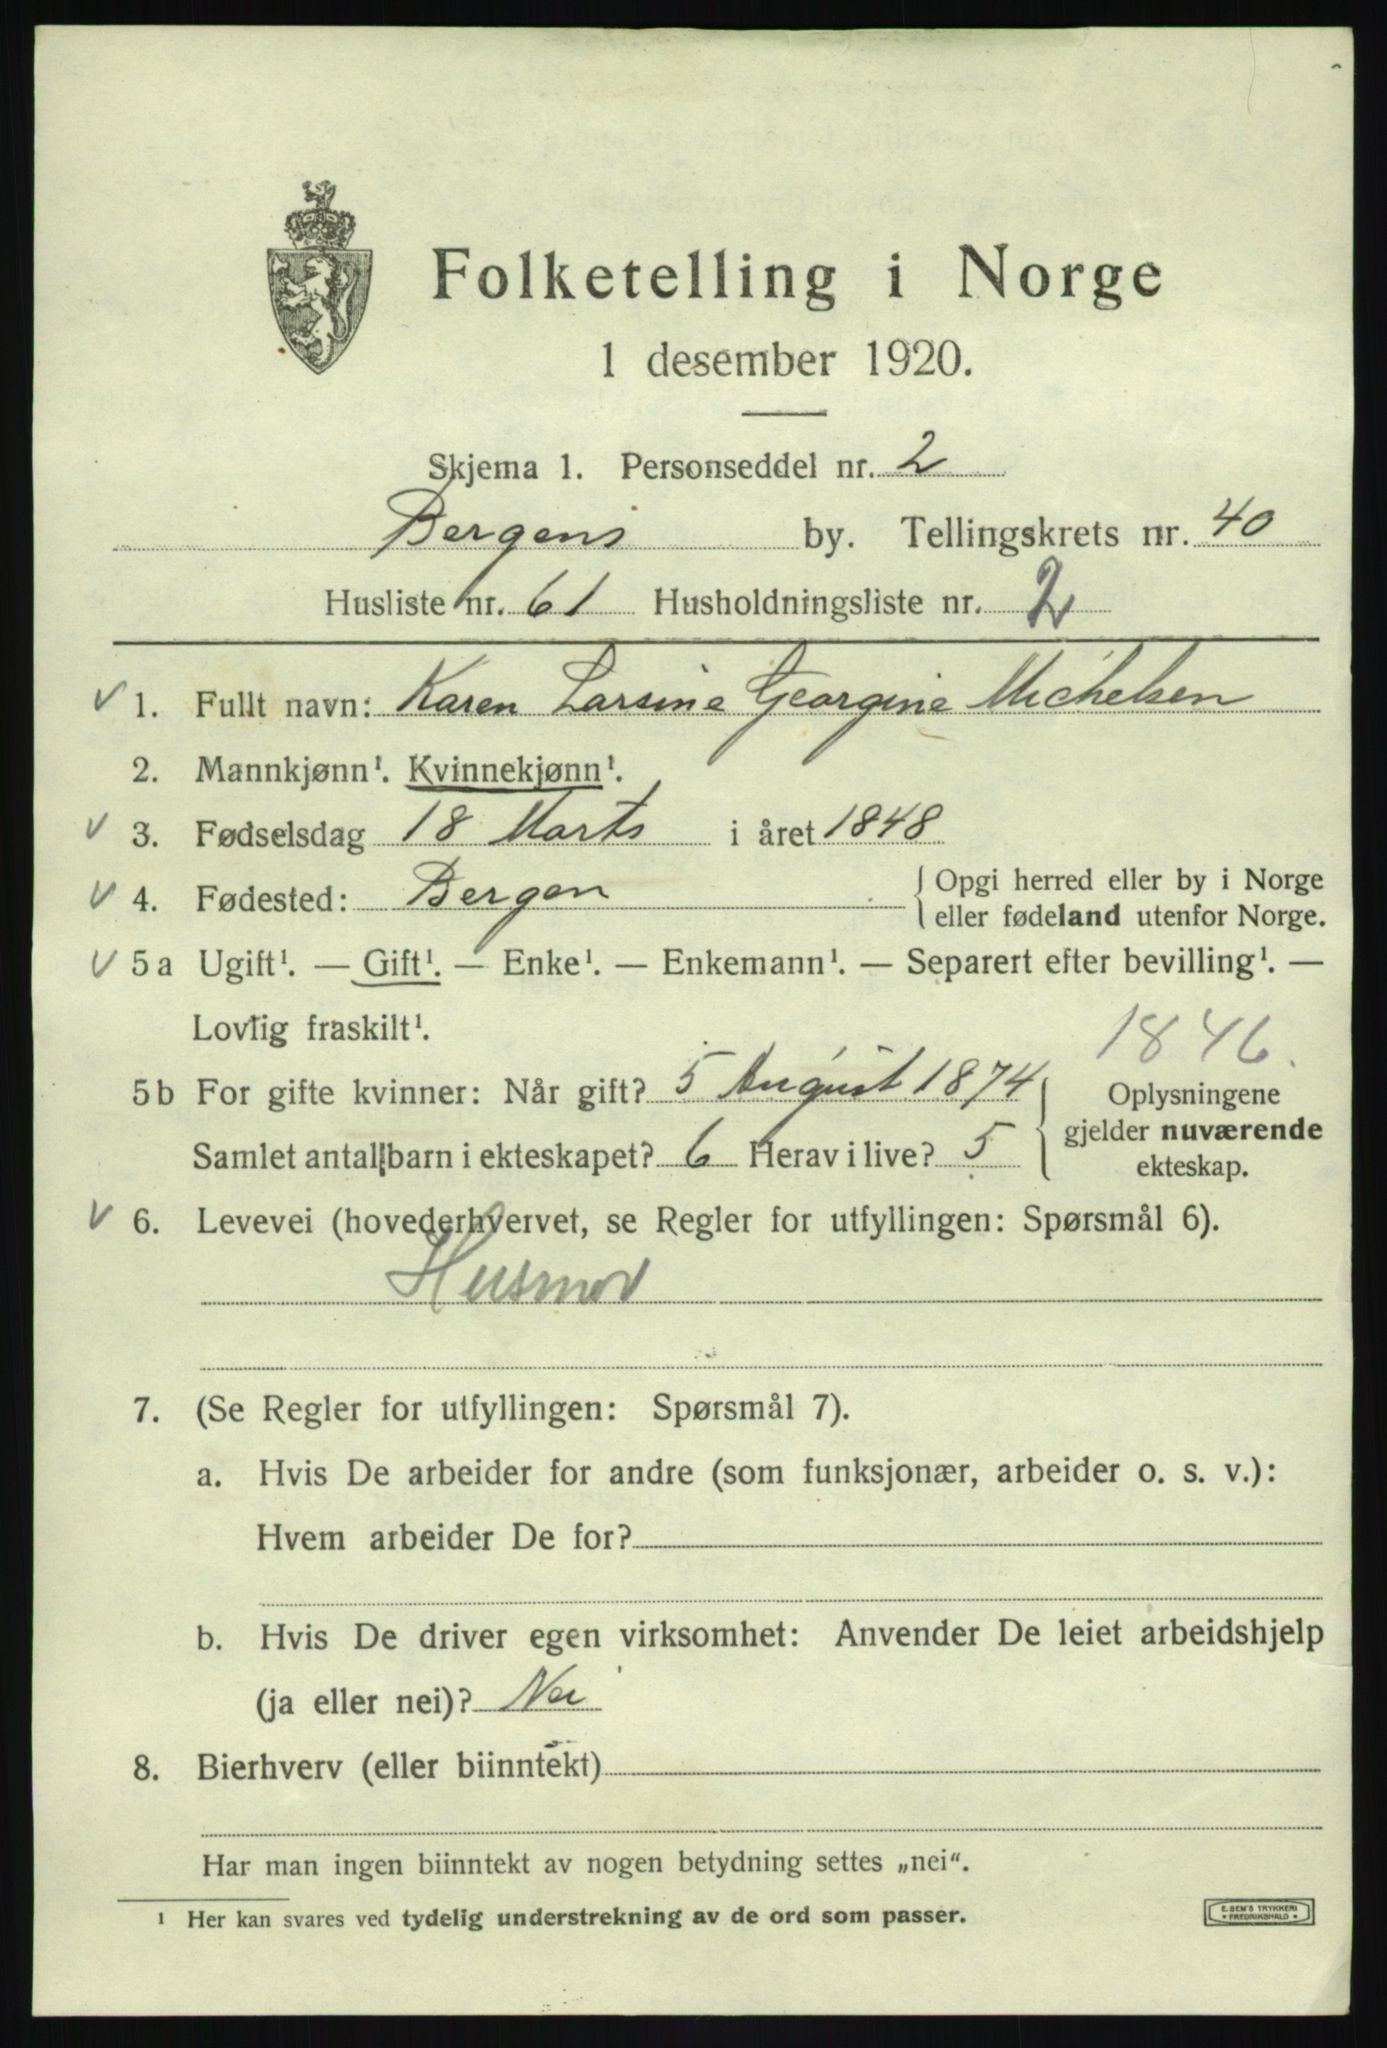 Folketelling i Norge
1 desember 1920.
Skjema 1. Personseddel nr. 2
Bergens by. Tellingskrets nr. 40
Husliste nr. 61 Husholdningsliste nr. 2
✓ 1. Fullt navn: Karen Larsine Georgine Michelsen
2. Mannkjønn¹. Kvinnekjønn¹.
✓ 3. Fødselsdag 18 Marts i året 1848
✓ 4. Fødested: Bergen { Opgi herred eller by i Norge
eller fødeland utenfor Norge.
✓ 5a Ugift¹. — Gift¹. — Enke¹. — Enkemann¹. — Separert efter bevilling¹. —
Lovlig fraskilt¹.
1846.
5b For gifte kvinner: Når gift? 5 August 1874
Samlet antall barn i ekteskapet? 6 Herav i live? 5
Oplysningene
gjelder nuværende
ekteskap.
✓ 6. Levevei (hovederhvervet, se Regler for utfyllingen: Spørsmål 6).
Husmor
7. (Se Regler for utfyllingen: Spørsmål 7).
a. Hvis De arbeider for andre (som funksjonær, arbeider o. s. v.):
Hvem arbeider De for?
b. Hvis De driver egen virksomhet: Anvender De leiet arbeidshjelp
(ja eller nei)? Nei
8. Bierhverv (eller biinntekt)
Har man ingen biinntekt av nogen betydning settes „nei“.
¹ Her kan svares ved tydelig understrekning av de ord som passer.
E. SEM'S TRYKKERI
• FREDRIKSHALD •